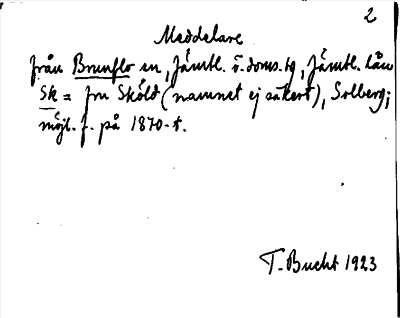 2
Meddelare
från Brunflo sn, Jämtl. ö. doms. tg, Jämtl. län
Sk = fru Sköld (namnet ej säkert), Solberg;
möjl. f. på 1870-t.
T. Bucht 1923